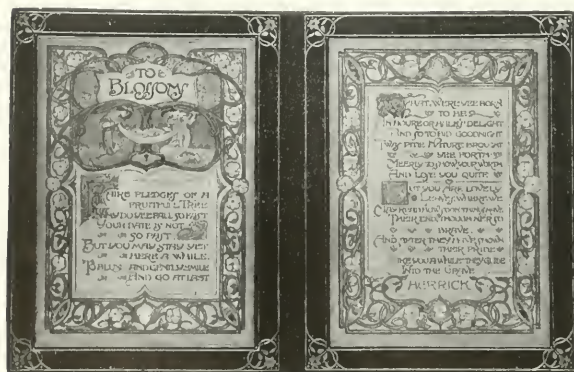 TO
BLOSSOMS
FAIRE PLEDGES OF A
FRUITFULL TREE
WHY DO YEE FALL SO FAST
YOUR DATE IS NOT
SO PAST
BUT YOU MAY STAY YET
HERE A WHILE
TO BLUSH AND GENTLY SMILE
AND GO AT LAST
WHAT, WERE YEE BORN
TO BE
AN HOURE OR HALF'S DELIGHT
AND SO TO BID GOODNIGHT
TWAS PITIE NATURE BROUGHT
YEE FORTH
MEERLY TO SHOW YOUR WORTH
AND LOSE YOU QUITE
BUT YOU ARE LOVELY
LEAVES, WHERE WE
MAY READ HOW SOON THINGS HAVE
THEIR END, THOUGH NE'R SO
BRAVE
AND AFTER THEY HAVE SHOWN
THEIR PRIDE
LIKE YOU A WHILE THEY GLIDE
INTO THE GRAVE
HERRICK